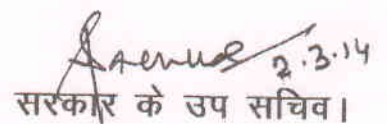 2.3.14
सरकार के उप सचिव।